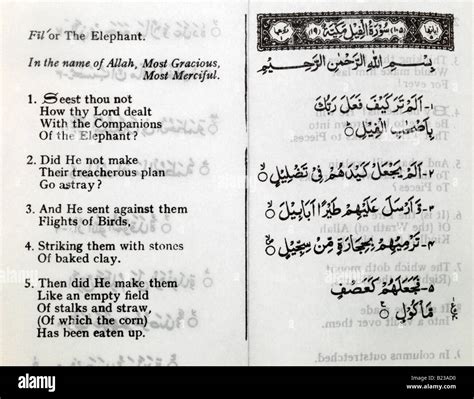 Fil or The Elephant.
In the name of Allah, Most Gracious,
Most Merciful.
1. Seest thou not
How thy Lord dealt
With the Companions
Of the Elephant?
2. Did He not make
Their treacherous plan
Go astray?
3. And He sent against them
Flights of Birds,
4. Striking them with stones
Of baked clay.
5. Then did He make them
Like an empty field
Of stalks and straw,
(Of which the corn)
Has been eaten up.
(١٠٥) سُورَةُ الْفِيلِ مَكِّيَّةٌ (١٩)
بِسْمِ اللَّهِ الرَّحْمٰنِ الرَّحِيْمِ
١- اَلَمْ تَرَ كَيْفَ فَعَلَ رَبُّكَ
بِاَصْحٰبِ الْفِيْلِ
٢- اَلَمْ يَجْعَلْ كَيْدَهُمْ فِيْ تَضْلِيْلٍ
٣- وَّاَرْسَلَ عَلَيْهِمْ طَيْرًا اَبَابِيْلَ
٤- تَرْمِيْهِمْ بِحِجَارَةٍ مِّنْ سِجِّيْلٍ
٥- فَجَعَلَهُمْ كَعَصْفٍ
مَّاْكُوْلٍ
alamy
alamy
Image ID: B23AD0
www.alamy.com